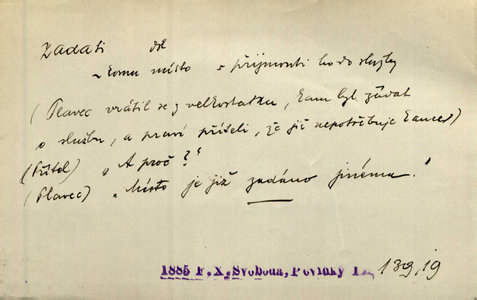 Zadati dok
~ komu místo = přijmouti ho do služby
(Plavec vrátil se z velkostatku, kam byl žádat
o službu, a praví příteli, že již nepotřebuje kanceř)
(Přítel) „A proč?“
(Plavec) „Místo je již zadáno jinému.“
1885 F. X. Svoboda, Povídky I., 139, 19